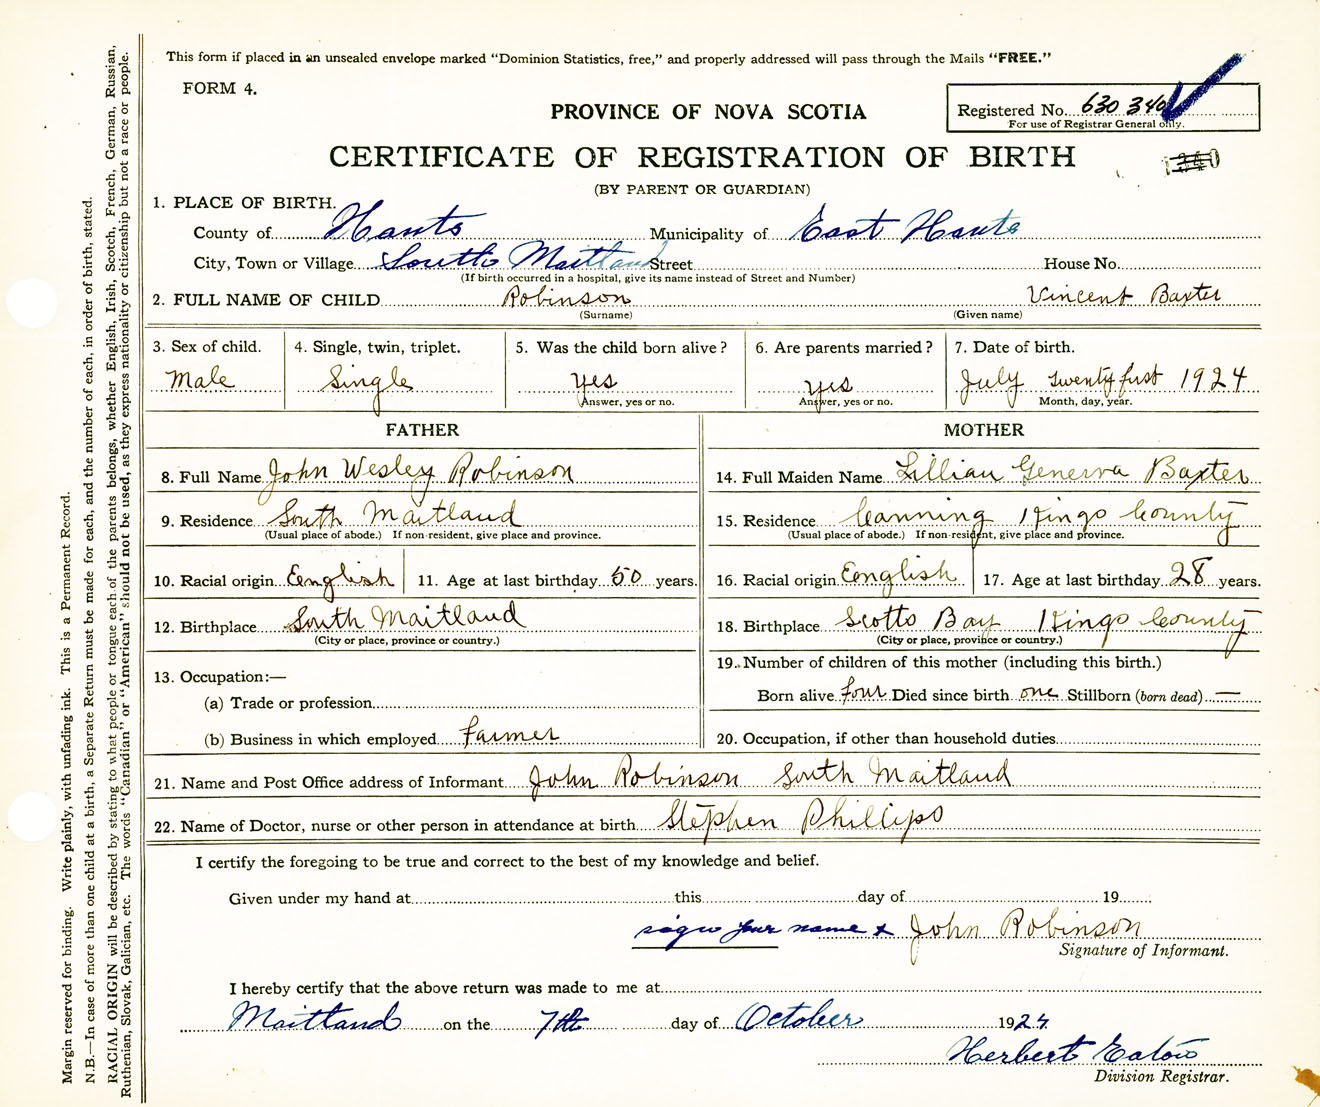 This form if placed in an unsealed envelope marked “Dominion Statistics, free,” and properly addressed will pass through the Mails “FREE.”
FORM 4.
PROVINCE OF NOVA SCOTIA
Registered No. 630 340
For use of Registrar General only.
CERTIFICATE OF REGISTRATION OF BIRTH
(BY PARENT OR GUARDIAN)
1. PLACE OF BIRTH.
County of Hants Municipality of East Hants
City, Town or Village South Maitland Street House No.
(If birth occurred in a hospital, give its name instead of Street and Number)
2. FULL NAME OF CHILD Robinson Vincent Baxter
(Surname) (Given name)
3. Sex of child. 4. Single, twin, triplet. 5. Was the child born alive? 6. Are parents married? 7. Date of birth.
Male Single yes yes July twenty first 1924
Answer, yes or no. Answer, yes or no. Month, day, year.
FATHER MOTHER
8. Full Name John Wesley Robinson 14. Full Maiden Name Lillian Generva Baxter
9. Residence South Maitland 15. Residence Canning Kings County
(Usual place of abode.) If non-resident, give place and province. (Usual place of abode.) If non-resident, give place and province.
10. Racial origin English 11. Age at last birthday 50 years. 16. Racial origin English 17. Age at last birthday 28 years.
12. Birthplace South Maitland 18. Birthplace Scotts Bay Kings County
(City or place, province or country.) (City or place, province or country.)
13. Occupation:— 19. Number of children of this mother (including this birth.)
(a) Trade or profession Born alive four Died since birth one Stillborn (born dead) —
(b) Business in which employed Farmer 20. Occupation, if other than household duties
21. Name and Post Office address of Informant John Robinson South Maitland
22. Name of Doctor, nurse or other person in attendance at birth Stephen Phillips
I certify the foregoing to be true and correct to the best of my knowledge and belief.
Given under my hand at this day of 19
sign your name x John Robinson
Signature of Informant.
I hereby certify that the above return was made to me at
Maitland on the 7th day of October 1924
Herbert Eaton
Division Registrar.
Margin reserved for binding. Write plainly, with unfading ink. This is a Permanent Record.
N.B.—In case of more than one child at a birth, a Separate Return must be made for each, and the number of each, in order of birth, stated.
RACIAL ORIGIN will be described by stating to what people or tongue each of the parents belongs, whether English, Irish, Scotch, French, German, Russian,
Ruthenian, Slovak, Galician, etc. The words “Canadian” or “American” should not be used, as they express nationality or citizenship but not a race or people.